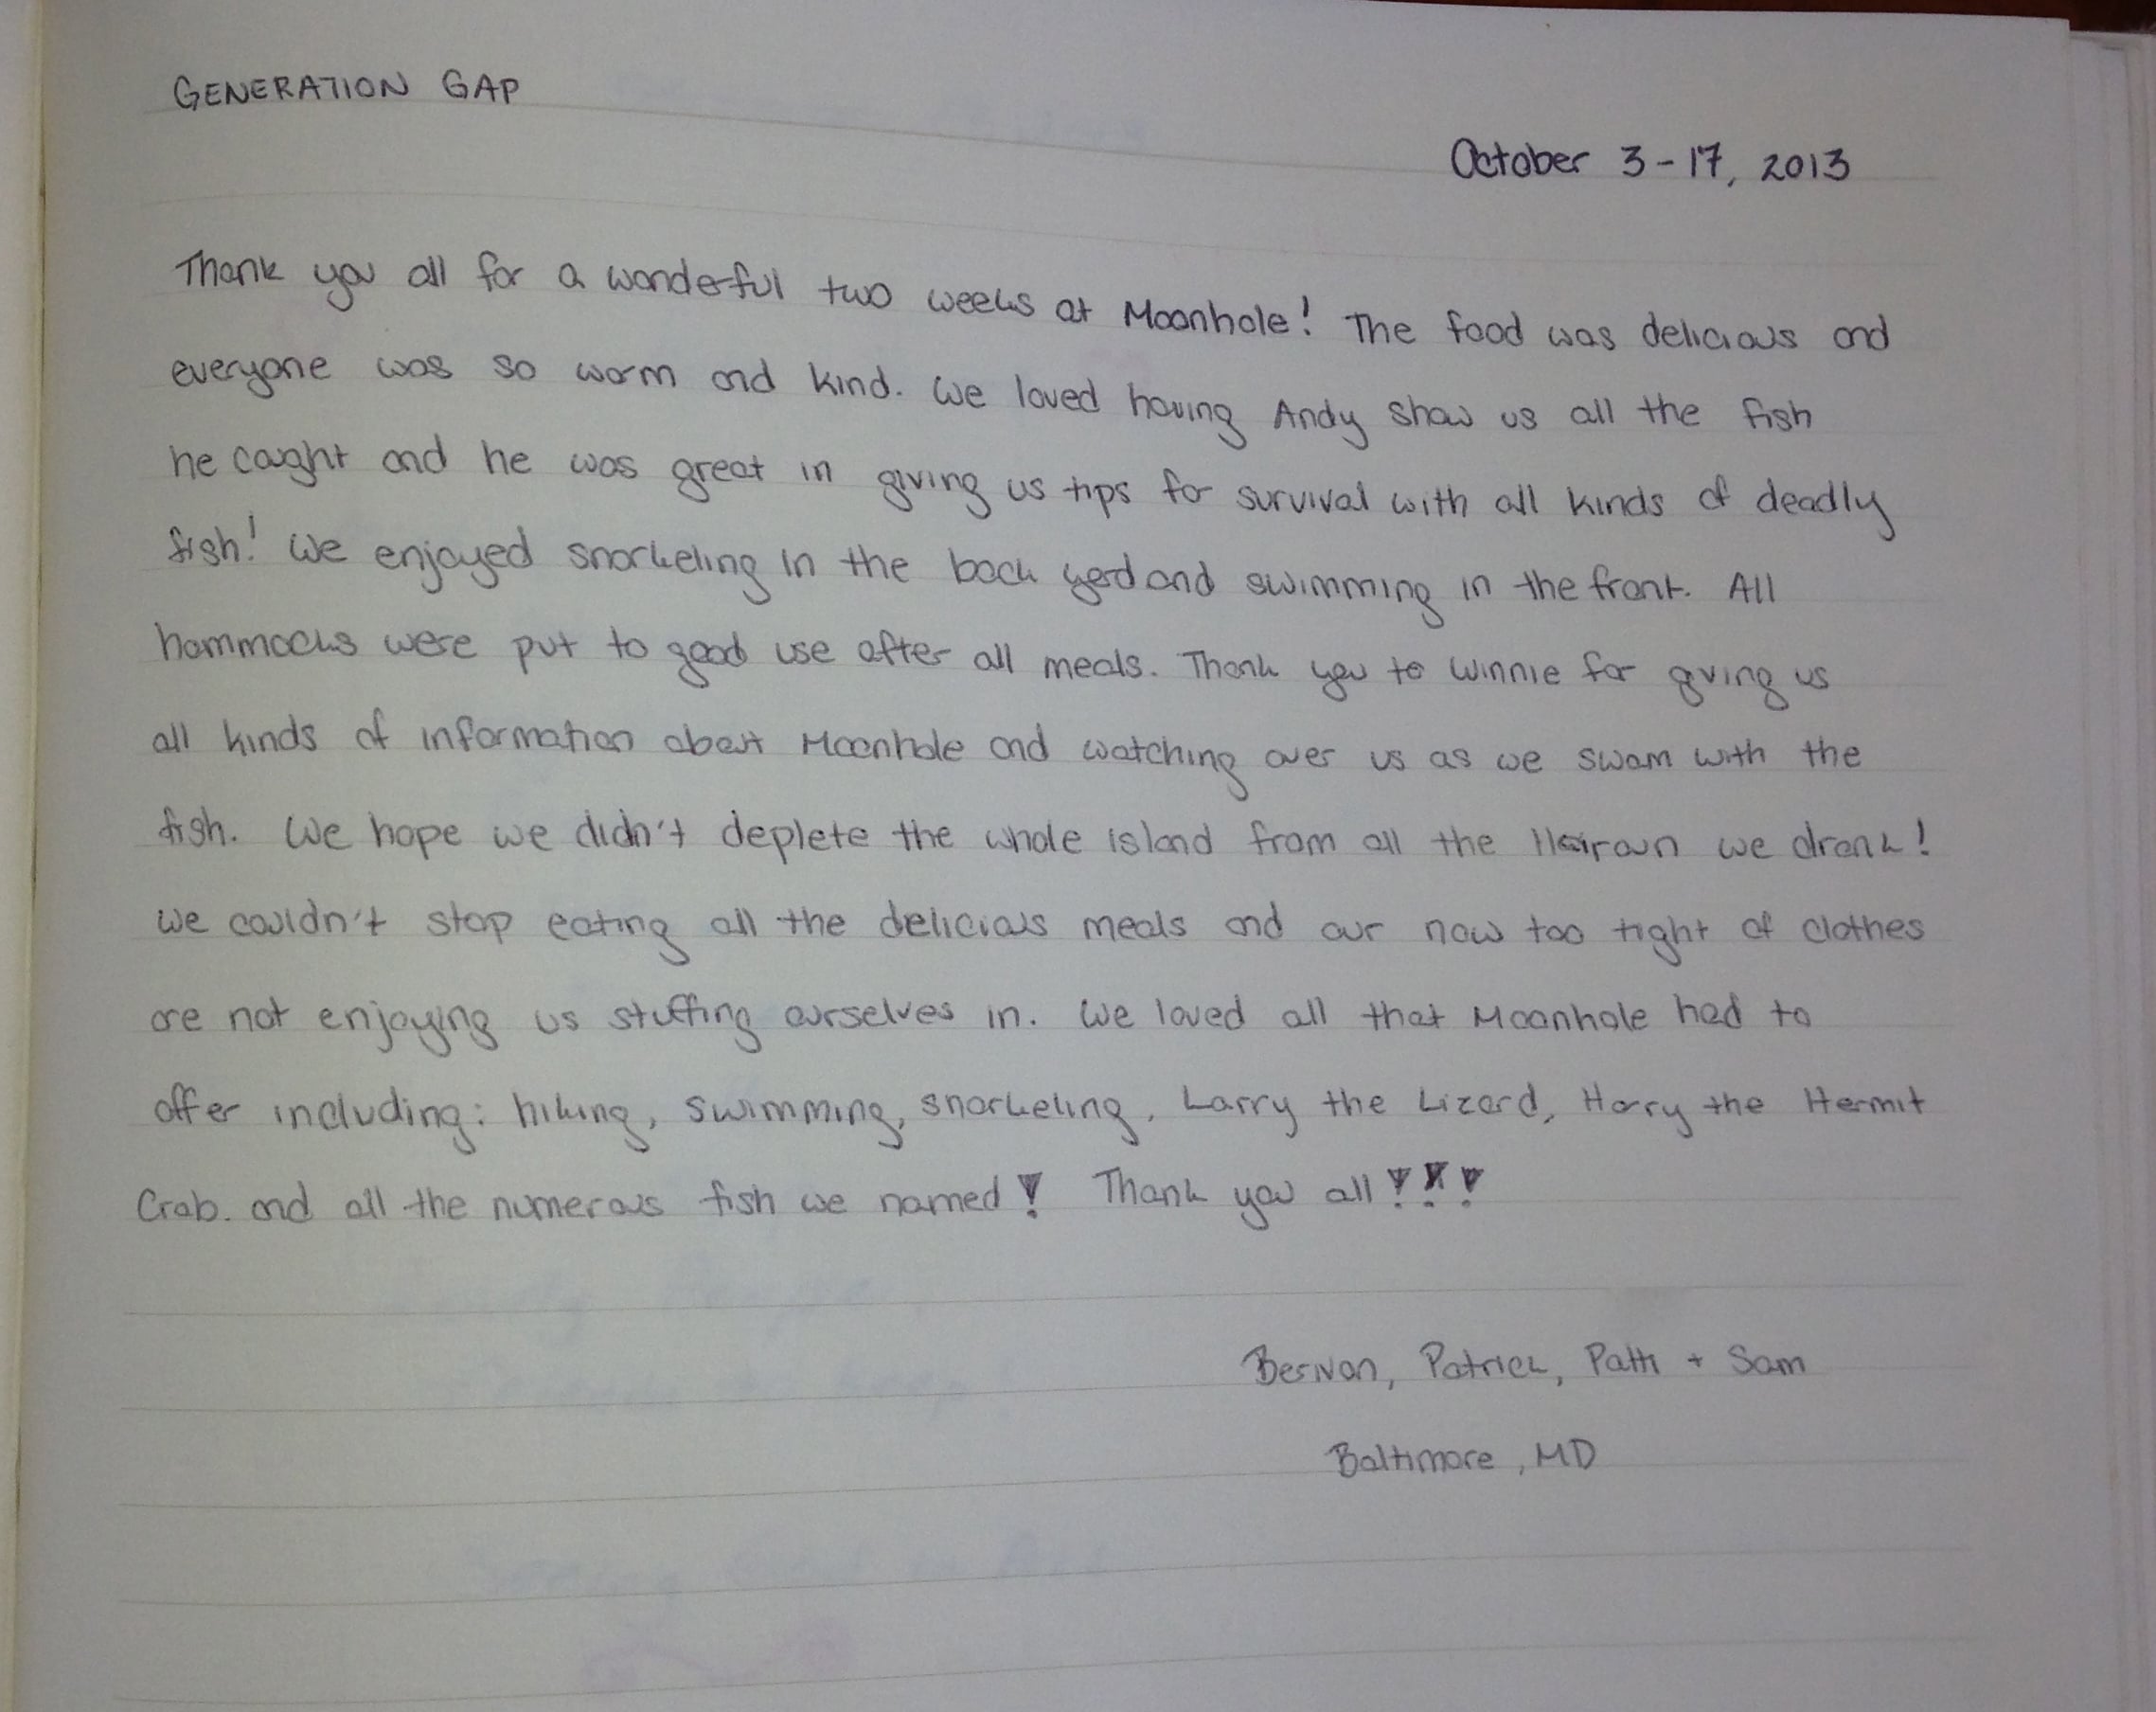 GENERATION GAP
October 3-17, 2013
Thank you all for a wonderful two weeks at Moonhole! The food was delicious and
everyone was so warm and kind. We loved having Andy show us all the fish
he caught and he was great in giving us tips for survival with all kinds of deadly
fish! We enjoyed snorkeling in the back yard and swimming in the front. All
hammocks were put to good use after all meals. Thank you to Winnie for giving us
all kinds of information about Moonhole and watching over us as we swam with the
fish. We hope we didn't deplete the whole island from all the Hairoun we drank!
We couldn't stop eating all the delicious meals and our now too tight of clothes
are not enjoying us stuffing ourselves in. We loved all that Moonhole had to
offer including: hiking, swimming, snorkeling, Larry the Lizard, Harry the Hermit
Crab. and all the numerous fish we named! Thank you all!!!
Berivan, Patrick, Patti + Sam
Baltimore, MD